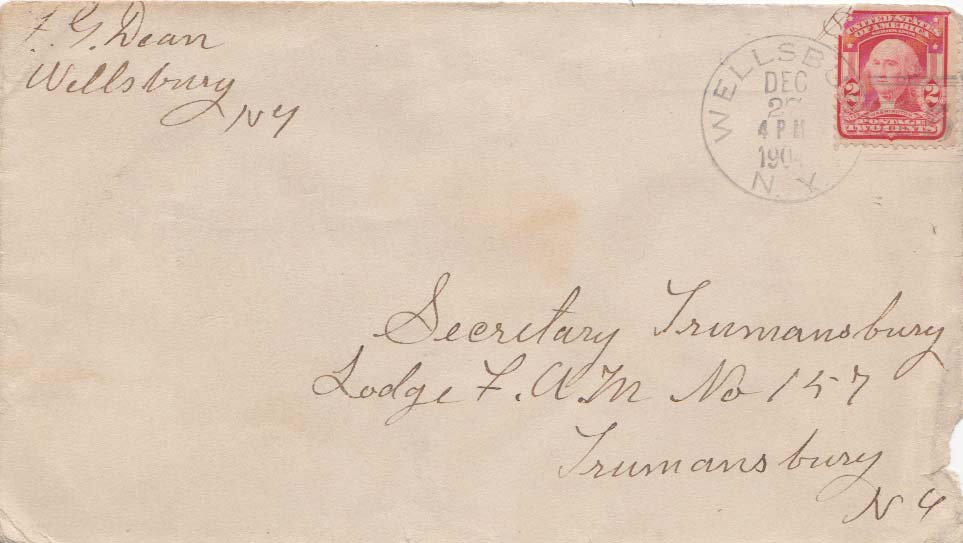 F. G. Dean
Wellsbury
NY
WELLSB
DEC
27
4 PM
190
N. Y.
UNITED STATES
OF AMERICA
2 2
POSTAGE
TWO CENTS
Secretary Trumansbury
Lodge F. A. M No 157
Trumansbury
N Y